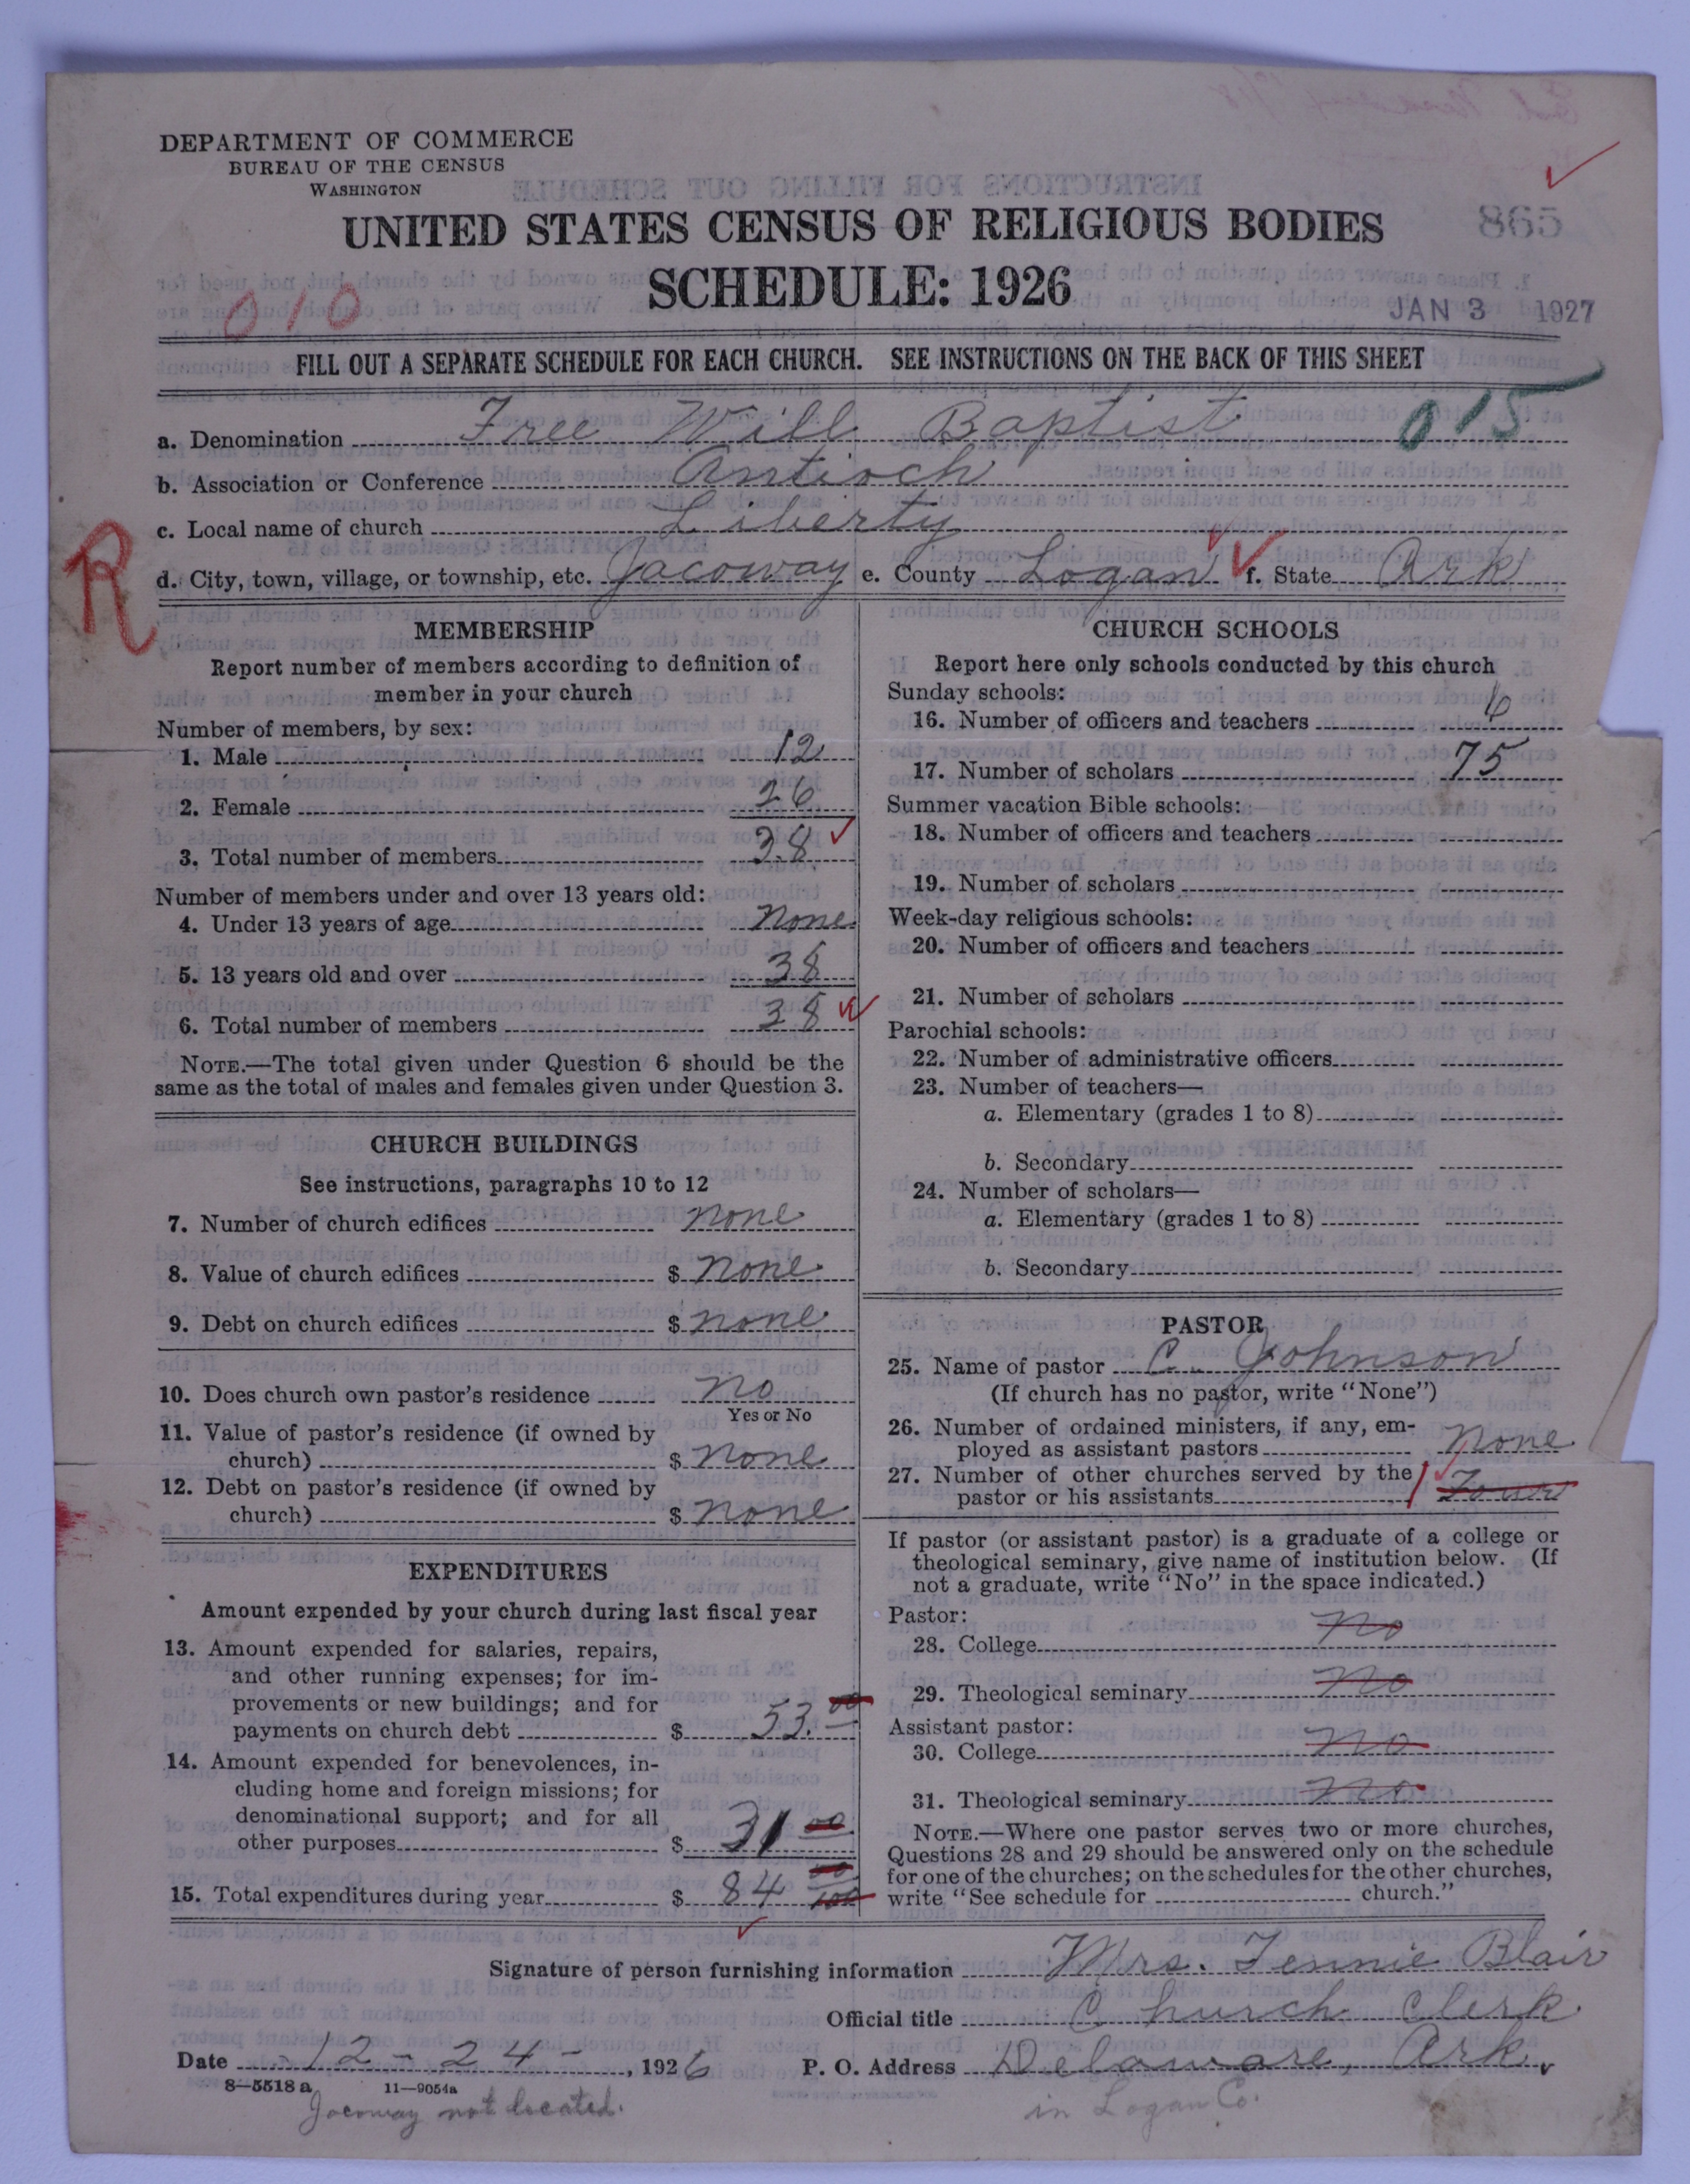 DEPARTMENT OF COMMERCE
BUREAU OF THE CENSUS
WASHINGTON
UNITED STATES CENSUS OF RELIGIOUS BODIES
SCHEDULE: 1926
865
010
JAN 3 1927
FILL OUT A SEPARATE SCHEDULE FOR EACH CHURCH. SEE INSTRUCTIONS ON THE BACK OF THIS SHEET
a. Denomination Free Will Baptist 015
b. Association or Conference Antioch
c. Local name of church Liberty
R
d. City, town, village, or township, etc. Jacoway e. County Logan f. State Ark
MEMBERSHIP
Report number of members according to definition of
member in your church
Number of members, by sex:
1. Male 12
2. Female 26
3. Total number of members 38
Number of members under and over 13 years old:
4. Under 13 years of age none
5. 13 years old and over 38
6. Total number of members 38
NOTE.—The total given under Question 6 should be the
same as the total of males and females given under Question 3.
CHURCH BUILDINGS
See instructions, paragraphs 10 to 12
7. Number of church edifices none
8. Value of church edifices $ none
9. Debt on church edifices $ none
10. Does church own pastor's residence no
Yes or No
11. Value of pastor's residence (if owned by
church) $ none
12. Debt on pastor's residence (if owned by
church) $ none
EXPENDITURES
Amount expended by your church during last fiscal year
13. Amount expended for salaries, repairs,
and other running expenses; for im-
provements or new buildings; and for
payments on church debt $ 53.00
14. Amount expended for benevolences, in-
cluding home and foreign missions; for
denominational support; and for all
other purposes $ 31 00
15. Total expenditures during year $ 84 00/100
CHURCH SCHOOLS
Report here only schools conducted by this church
Sunday schools:
16. Number of officers and teachers 6
17. Number of scholars 75
Summer vacation Bible schools:
18. Number of officers and teachers
19. Number of scholars
Week-day religious schools:
20. Number of officers and teachers
21. Number of scholars
Parochial schools:
22. Number of administrative officers
23. Number of teachers—
a. Elementary (grades 1 to 8)
b. Secondary
24. Number of scholars—
a. Elementary (grades 1 to 8)
b. Secondary
PASTOR
25. Name of pastor C. Johnson
(If church has no pastor, write "None")
26. Number of ordained ministers, if any, em-
ployed as assistant pastors none
27. Number of other churches served by the
pastor or his assistants Four
If pastor (or assistant pastor) is a graduate of a college or
theological seminary, give name of institution below. (If
not a graduate, write "No" in the space indicated.)
Pastor:
28. College no
29. Theological seminary no
Assistant pastor:
30. College no
31. Theological seminary no
NOTE.—Where one pastor serves two or more churches,
Questions 28 and 29 should be answered only on the schedule
for one of the churches; on the schedules for the other churches,
write "See schedule for church."
Signature of person furnishing information Mrs. Fennie Blair
Official title Church Clerk
Date 12-24-, 1926 P. O. Address Delaware, Ark.
8—5518 a 11—9054a
Jacoway not located. in Logan Co.